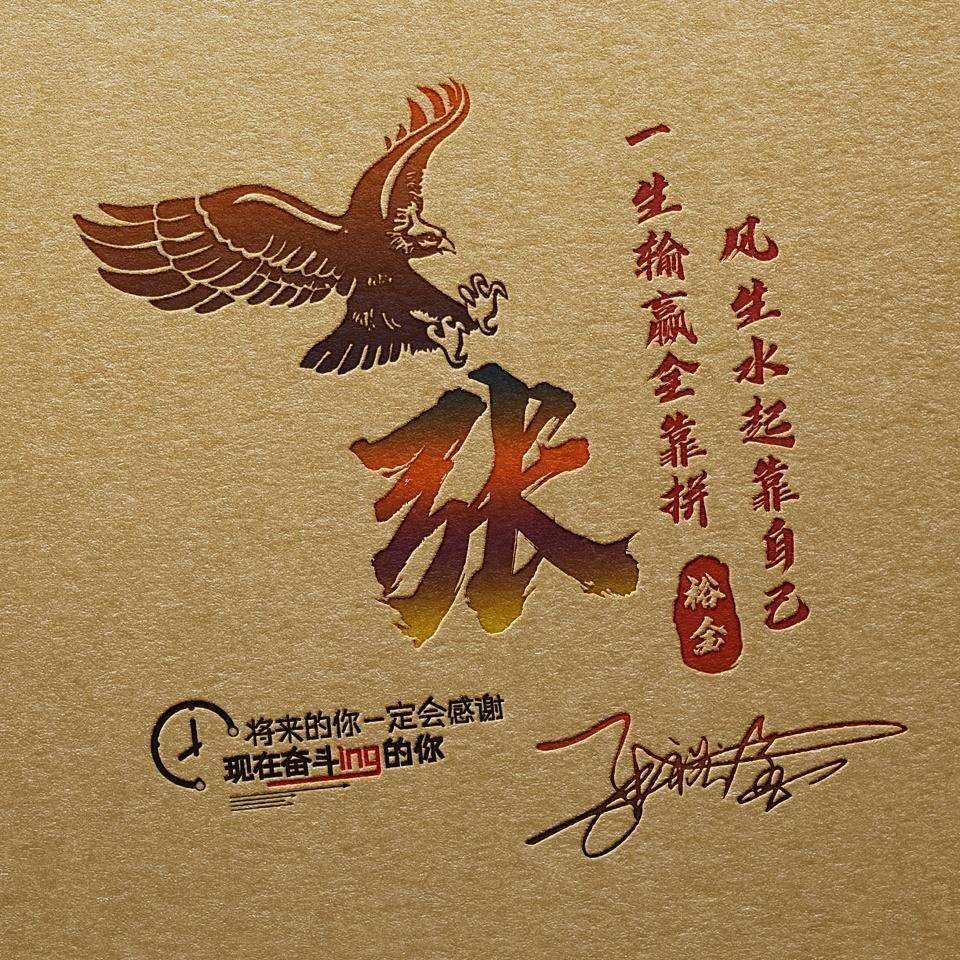 一生输赢全靠拼
风生水起靠自己
张
裕金
将来的你一定会感谢
现在奋斗ing的你
张裕金